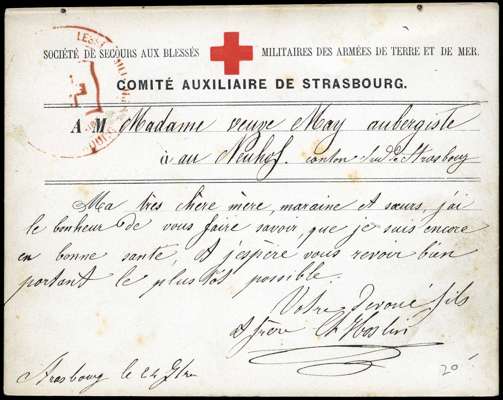 SOCIÉTÉ DE SECOURS AUX BLESSÉS MILITAIRES DES ARMÉES DE TERRE ET DE MER.
COMITÉ AUXILIAIRE DE STRASBOURG.
A M Madame veuve May aubergiste
à au Neuhof. canton Sud de Strasbourg
Ma très chère mère, maraine et sœurs, j'ai
le bonheur de vous faire savoir, que je suis encore
en bonne santé, et j'espère vous revoir bien
portant le plus tôt possible.
Votre devoué fils
et frère
Strasbourg le 24 7bre
20